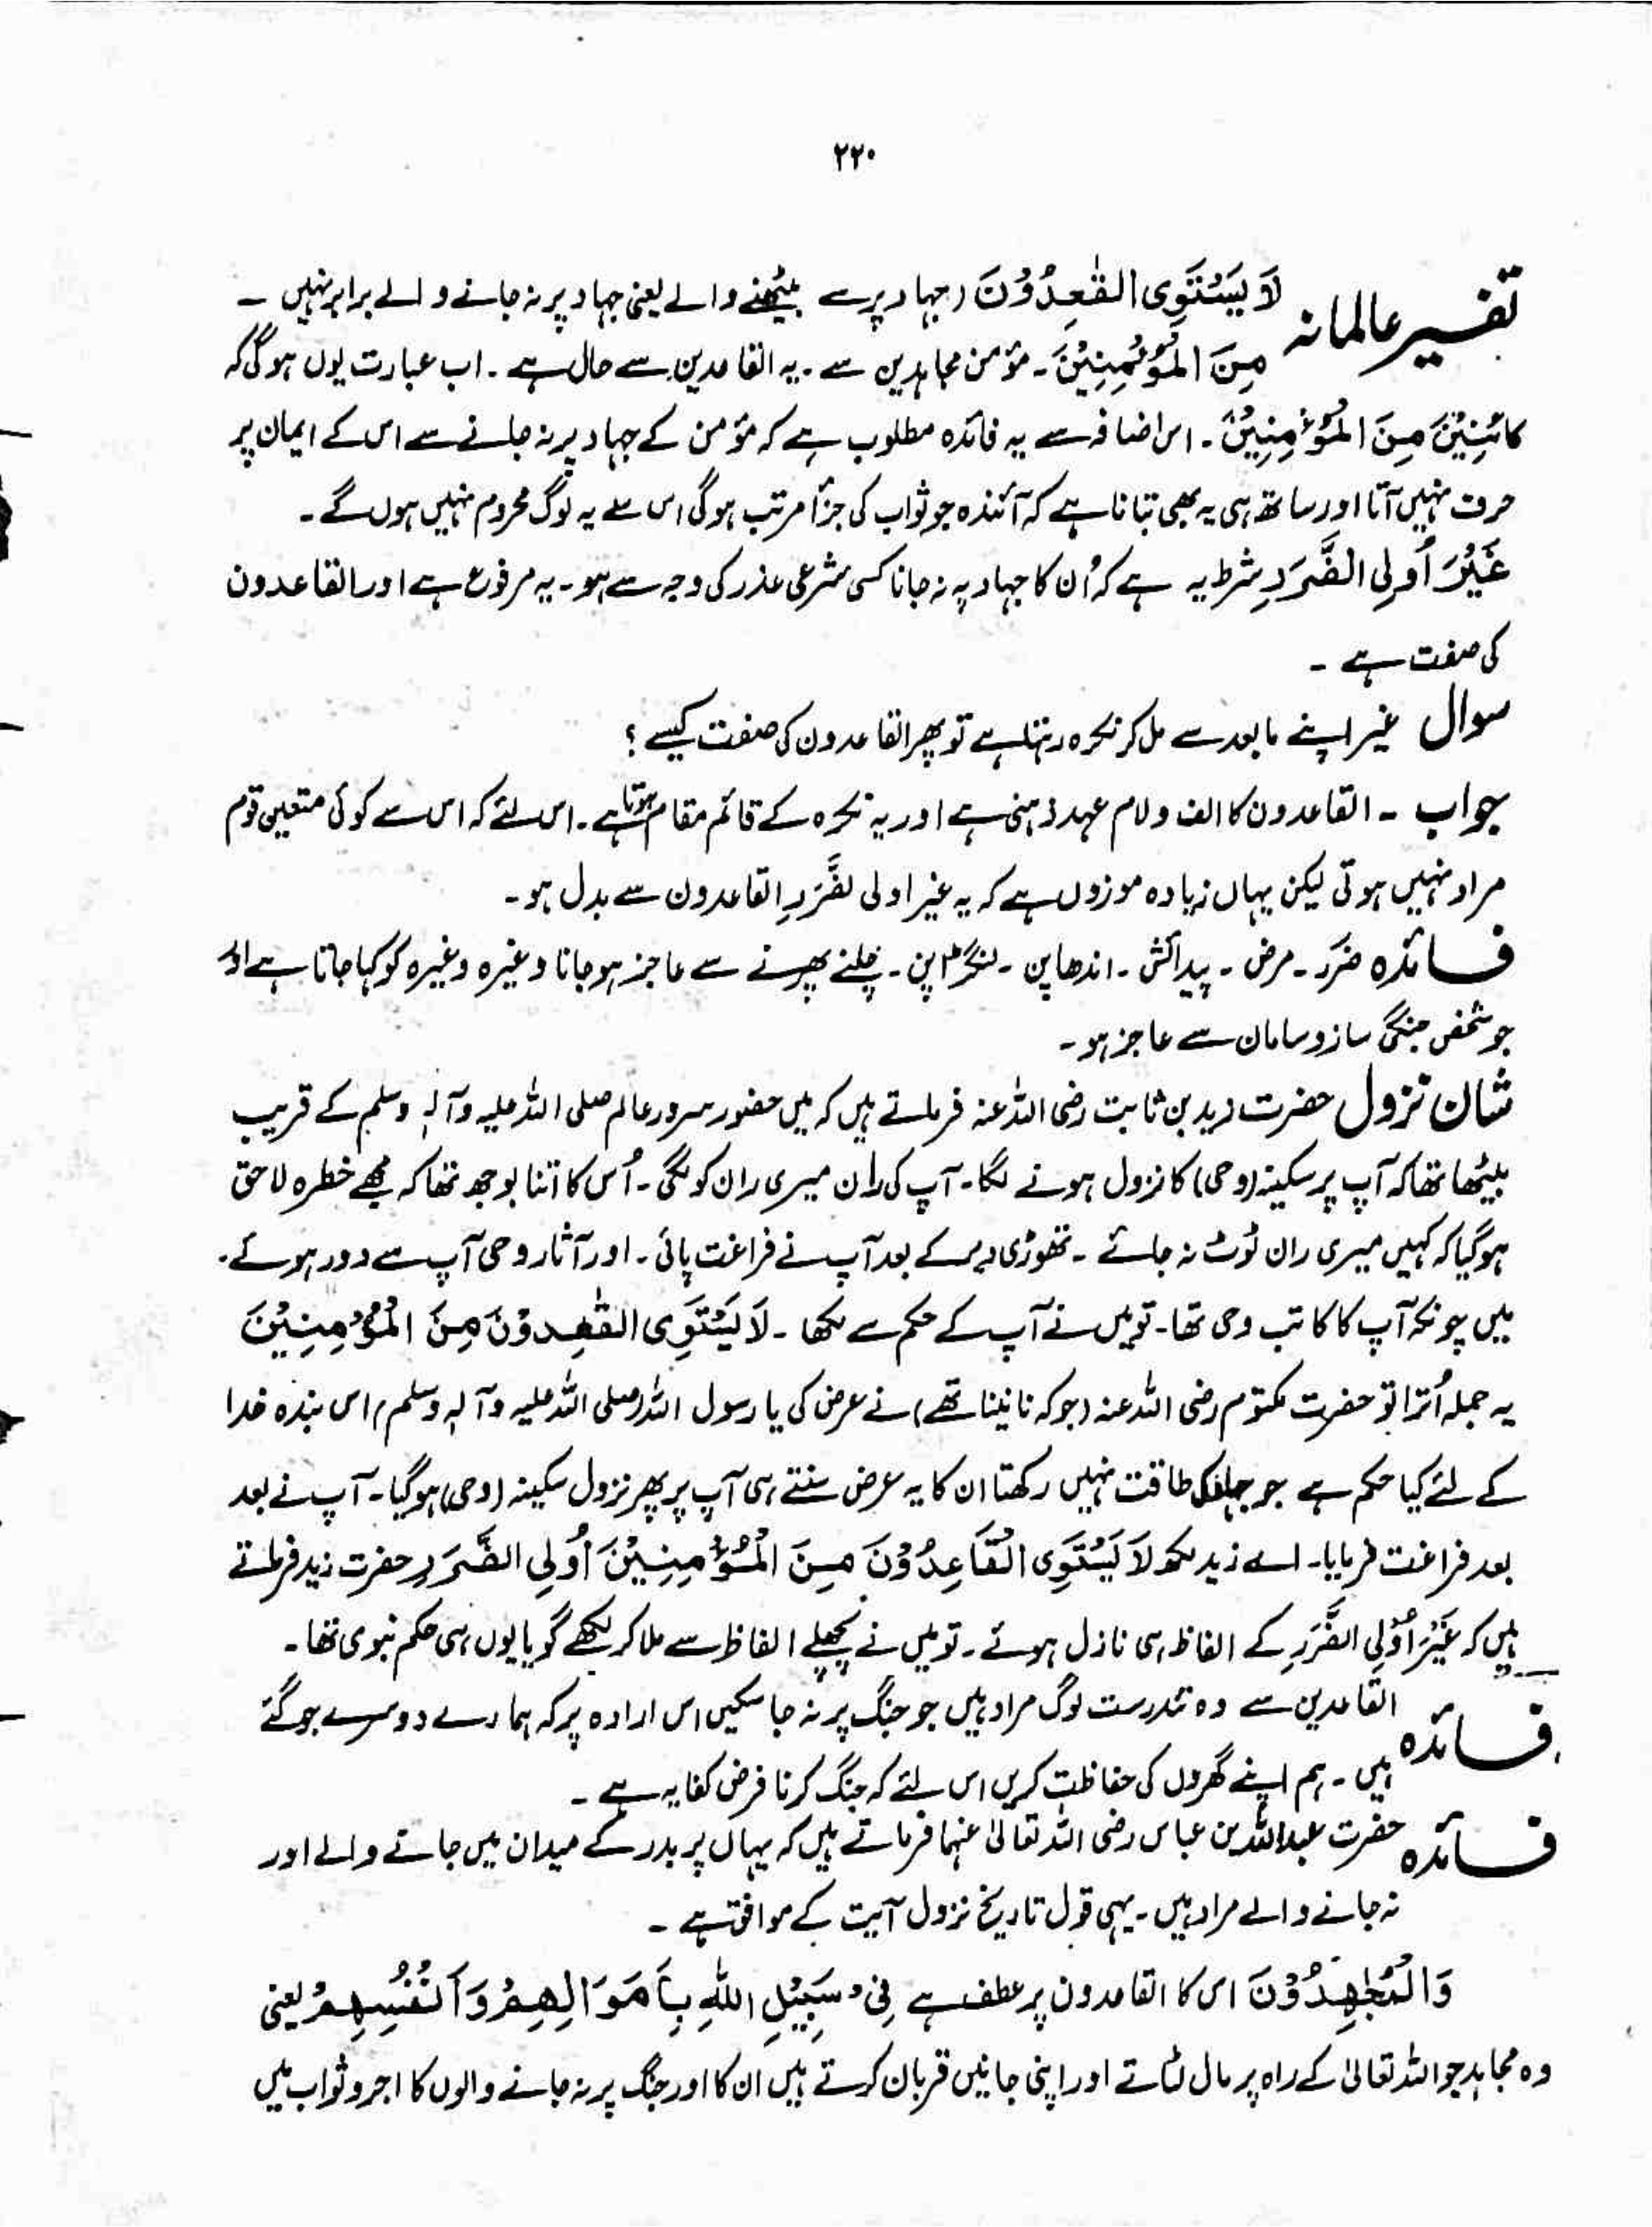 ۲۲۰
تفسیر عالمانہ لَا يَسْتَوِى الْقٰعِدُوْنَ (جہاد پر سے بیٹھنے والے یعنی جہاد پر نہ جانے والے برابر نہیں ۔
مِنَ الْمُؤْمِنِيْنَ ۔ مؤمن مجاہدین سے ۔ یہ القاعدین سے حال ہے ۔ اب عبارت یوں ہوگی کہ
کائنین مِنَ الْمُؤْمِنِيْنَ ۔ اس اضافہ سے یہ فائدہ مطلوب ہے کہ مؤمن کے جہاد پر نہ جانے سے اس کے ایمان پر
حرف نہیں آتا اور ساتھ ہی یہ بھی بتانا ہے کہ آئندہ جو ثواب کی جزأ مرتب ہوگی اس سے یہ لوگ محروم نہیں ہوں گے ۔
غَيْرُ اُولِى الضَّرَرِ شرط یہ ہے کہ اُن کا جہاد پہ نہ جانا کسی شرعی عذر کی وجہ سے ہو ۔ یہ مرفوع ہے اور القاعدون
کی صفت ہے ۔
سوال غیر اپنے مابعد سے مل کر نکرہ رہتا ہے تو پھر القاعدون کی صفت کیسے ؟
جواب ۔ القاعدون کا الف ولام عہد ذہنی ہے اور یہ نکرہ کے قائم مقام ہوتا ہے ۔ اس لئے کہ اس سے کوئی متعین قوم
مراد نہیں ہوتی لیکن یہاں زیادہ موزوں ہے کہ یہ غیر اولی لضَّرَرِ القاعدون سے بدل ہو ۔
فائدہ ضرر ۔ مرض ۔ پیدائش ۔ اندھاپن ۔ لنگڑاپن ۔ چلنے پھرنے سے عاجز ہو جانا وغیرہ وغیرہ کو کہا جاتا ہے اور
جو شخص جنگی سازوسامان سے عاجز ہو ۔
شان نزول حضرت زید بن ثابت رضی اللہ عنہ فرماتے ہیں کہ میں حضور سرور عالم صلی اللہ علیہ وآلہٖ وسلم کے قریب
بیٹھا تھا کہ آپ پر سکینہ (وحی) کا نزول ہونے لگا ۔ آپ کی ران میری ران کو لگی ۔ اُس کا اتنا بوجھ تھا کہ مجھے خطرہ لاحق
ہوگیا کہ کہیں میری ران ٹوٹ نہ جائے ۔ تھوڑی دیر کے بعد آپ نے فراغت پائی ۔ اور آثار وحی آپ سے دور ہوئے ۔
میں چونکہ آپ کا کاتب وحی تھا ۔ تو میں نے آپ کے حکم سے لکھا ۔ لَا يَسْتَوِى الْقٰعِدُوْنَ مِنَ الْمُؤْمِنِيْنَ
یہ جملہ اُترا تو حضرت مکتوم رضی اللہ عنہ (جو کہ نابینا تھے) نے عرض کی یا رسول اللہ (صلی اللہ علیہ وآلہٖ وسلم) اس بندہ خدا
کے لئے کیا حکم ہے جو جہاد کی طاقت نہیں رکھتا ان کا یہ عرض سنتے ہی آپ پر پھر نزول سکینہ (وحی) ہوگیا ۔ آپ نے بعد
بعد فراغت فرمایا ۔ اے زید لکھ لَا يَسْتَوِى الْقَاعِدُوْنَ مِنَ الْمُؤْمِنِيْنَ اُولِى الضَّرَرِ حضرت زید فرماتے
ہیں کہ غَيْرُ اُوْلِى الضَّرَرِ کے الفاظ ہی نازل ہوئے ۔ تو میں نے پچھلے الفاظ سے ملا کر لکھے گویا یوں ہی حکم نبوی تھا ۔
فائدہ القاعدین سے وہ تندرست لوگ مراد ہیں جو جنگ پر نہ جا سکیں اس ارادہ پر کہ ہمارے دوسرے جو گئے
ہیں ۔ ہم اپنے گھروں کی حفاظت کریں اس لئے کہ جنگ کرنا فرض کفایہ ہے ۔
فائدہ حضرت عبداللہ بن عباس رضی اللہ تعالیٰ عنہما فرماتے ہیں کہ یہاں پر بدر کے میدان میں جانے والے اور
نہ جانے والے مراد ہیں ۔ یہی قول تاریخ نزول آیت کے موافق ہے ۔
وَالْمُجٰهِدُوْنَ اس کا القاعدون پر عطف ہے فِىْ سَبِيْلِ اللّٰهِ بِاَمْوَالِهِمْ وَاَنْفُسِهِمْ یعنی
وہ مجاہد جو اللہ تعالیٰ کے راہ پر مال لٹاتے اور اپنی جانیں قربان کرتے ہیں ان کا اور جنگ پر نہ جانے والوں کا اجر و ثواب میں